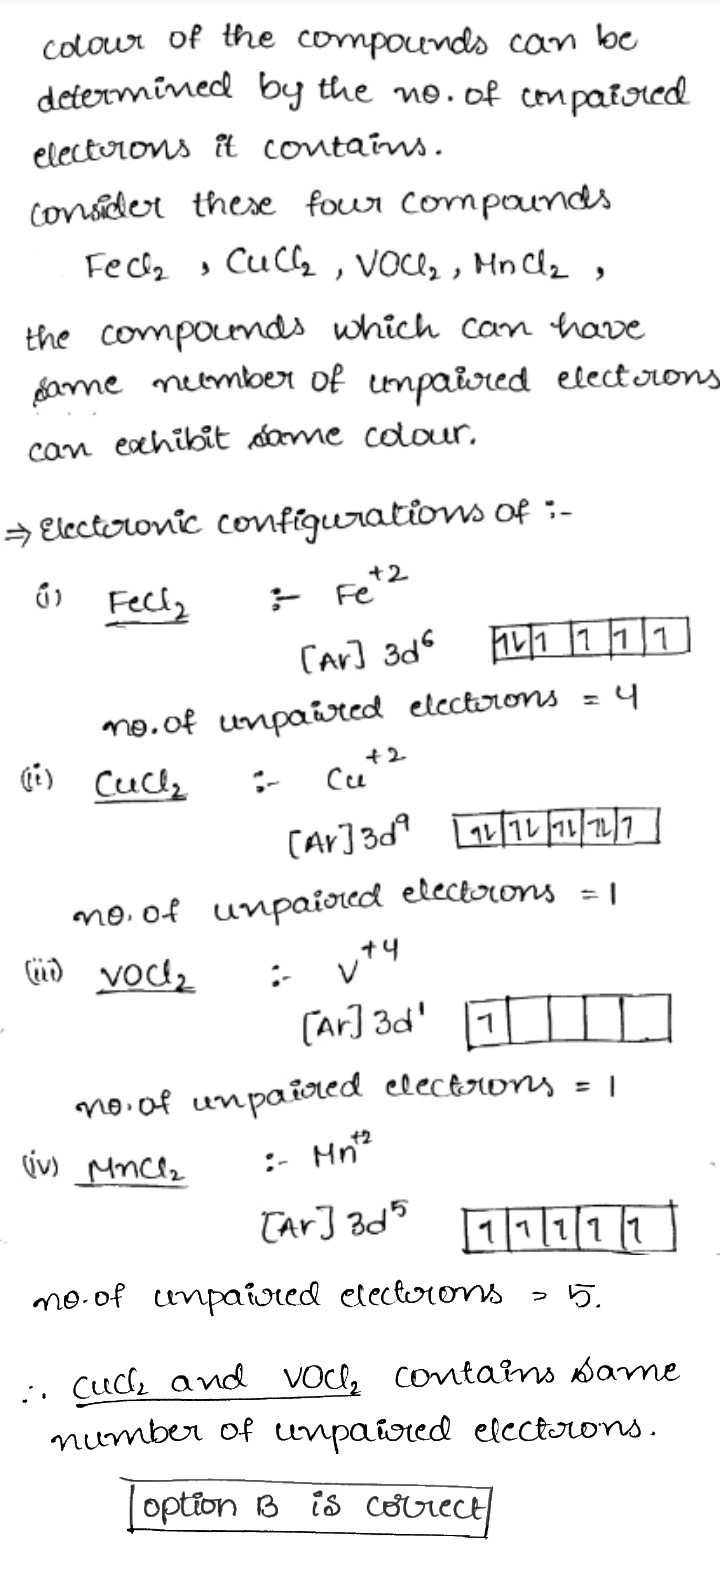 colour of the compounds can be
determined by the no. of unpaired
electrons it contains.
consider these four compounds
FeCl2 , CuCl2 , VOCl2 , MnCl2 ,
the compounds which can have
same number of unpaired electrons
can exhibit same colour.
⇒ Electronic configurations of :-
(i) FeCl2 :- Fe+2
[Ar] 3d6 1L 1 1 1 1
no. of unpaired electrons = 4
(ii) CuCl2 :- Cu+2
[Ar] 3d9 1L 1L 1L 1L 1
no. of unpaired electrons = 1
(iii) VOCl2 :- V+4
[Ar] 3d1 1
no. of unpaired electrons = 1
(iv) MnCl2 :- Mn+2
[Ar] 3d5 1 1 1 1 1
no. of unpaired electrons = 5.
∴ CuCl2 and VOCl2 contains same
number of unpaired electrons.
option B is correct